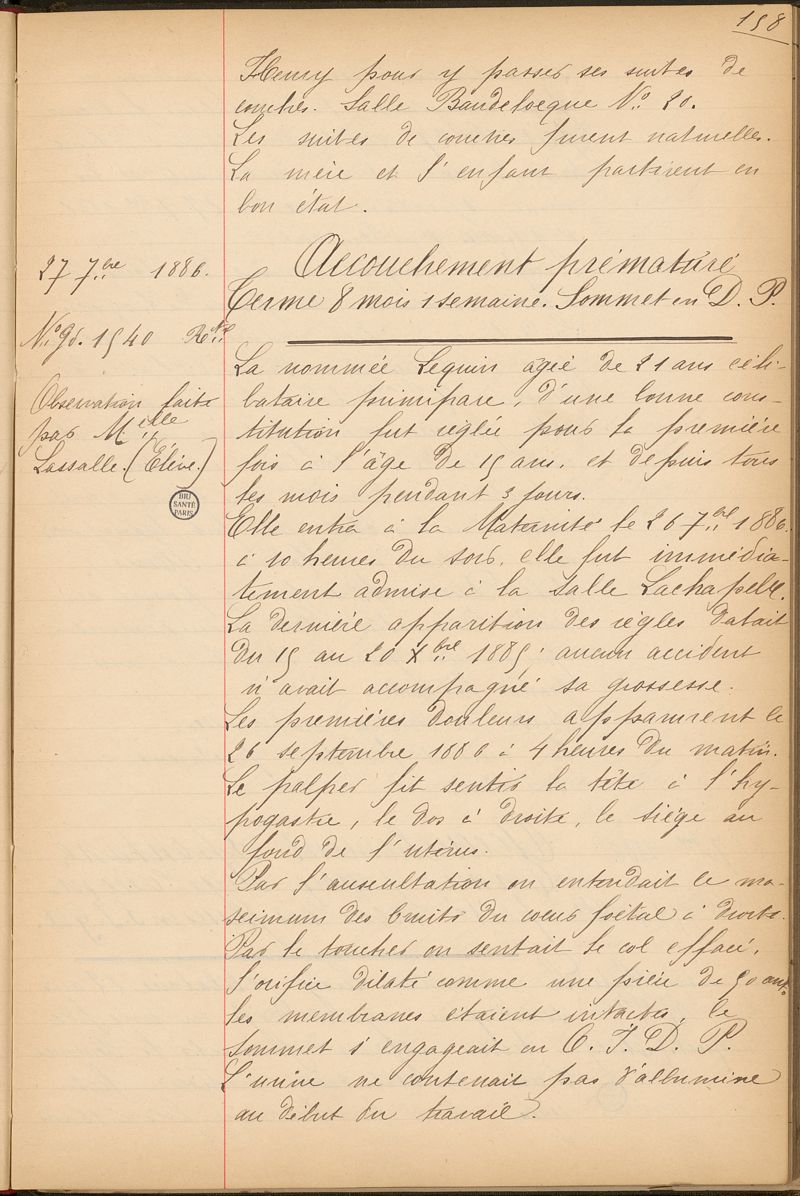 198
Henry pour y passer ses suites de
couches. Salle Baudelocque N° 20.
Les suites de couches furent naturelles.
La mère et l'enfant partirent en
bon état.
27 7bre 1886.
Accouchement prématuré
Terme 8 mois 1 semaine. Sommet en D. P.
N° Gd. 1540
Observation faite
par Melle
Lassalle. (Élève.)
BIU
SANTÉ
PARIS
La nommée Lequin agée de 21 ans céli-
bataire primipare, d'une bonne cons-
titution fut réglée pour la première
fois à l'âge de 15 ans, et depuis tous
les mois pendant 3 jours.
Elle entra à la Maternité le 26 7bre 1886.
à 10 heures du soir, elle fut immédia-
tement admise à la salle Lachapelle.
La dernière apparition des règles datait
du 15 au 20 Xbre 1885; aucun accident
n'avait accompagné sa grossesse.
Les premières douleurs apparurent le
26 septembre 1886 à 4 heures du matin.
Le palper fit sentir la tête à l'hy-
pogastre, le dos à droite, le siége au
fond de l'utérus.
Par l'auscultation on entendait le ma-
ximum des bruits du cœur fœtal à droite.
Par le toucher on sentait le col effacé,
l'orifice dilaté comme une pièce de 50 cent.
les membranes étaient intactes, le
sommet s'engageait en O. I. D. P.
L'urine ne contenait pas d'albumine
au début du travail.